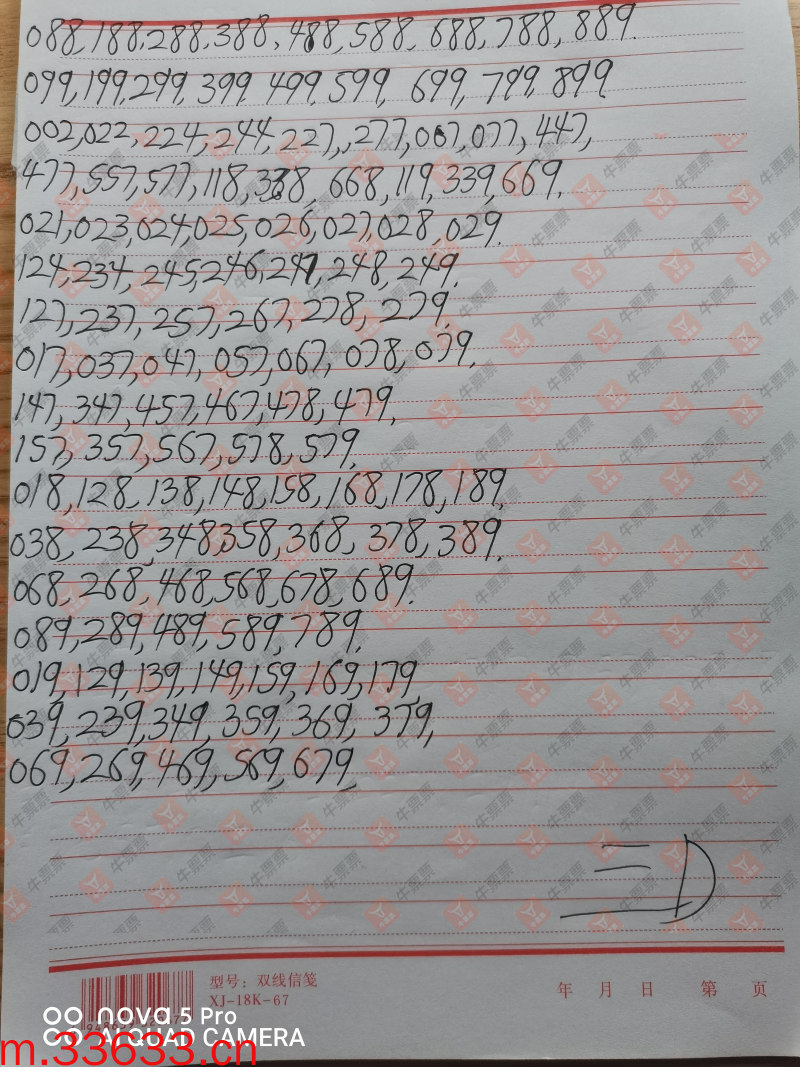 088,188,288,388,488,588,688,788,889.
099,199,299,399,499,599,699,799,899.
002,022,224,244,227,,277,007,077,447,
477,557,577,118,338,668,119,339,669.
021,023,024,025,026,027,028,029.
124,234,245,246,247,248,249.
127,237,257,267,278,279.
017,037,047,057,067,078,079.
147,347,457,467,478,479.
157,357,567,578,579.
018,128,138,148,158,168,178,189,
038,238,348,358,368,378,389.
068,268,468,568,678,689.
089,289,489,589,789.
019,129,139,149,159,169,179,
039,239,349,359,369,379,
069,269,469,569,679,
三D
型号：双线信笺
XJ-18K-67
年 月 日 第 页
nova 5 Pro
AI QUAD CAMERA
m.33633.cn
牛票票